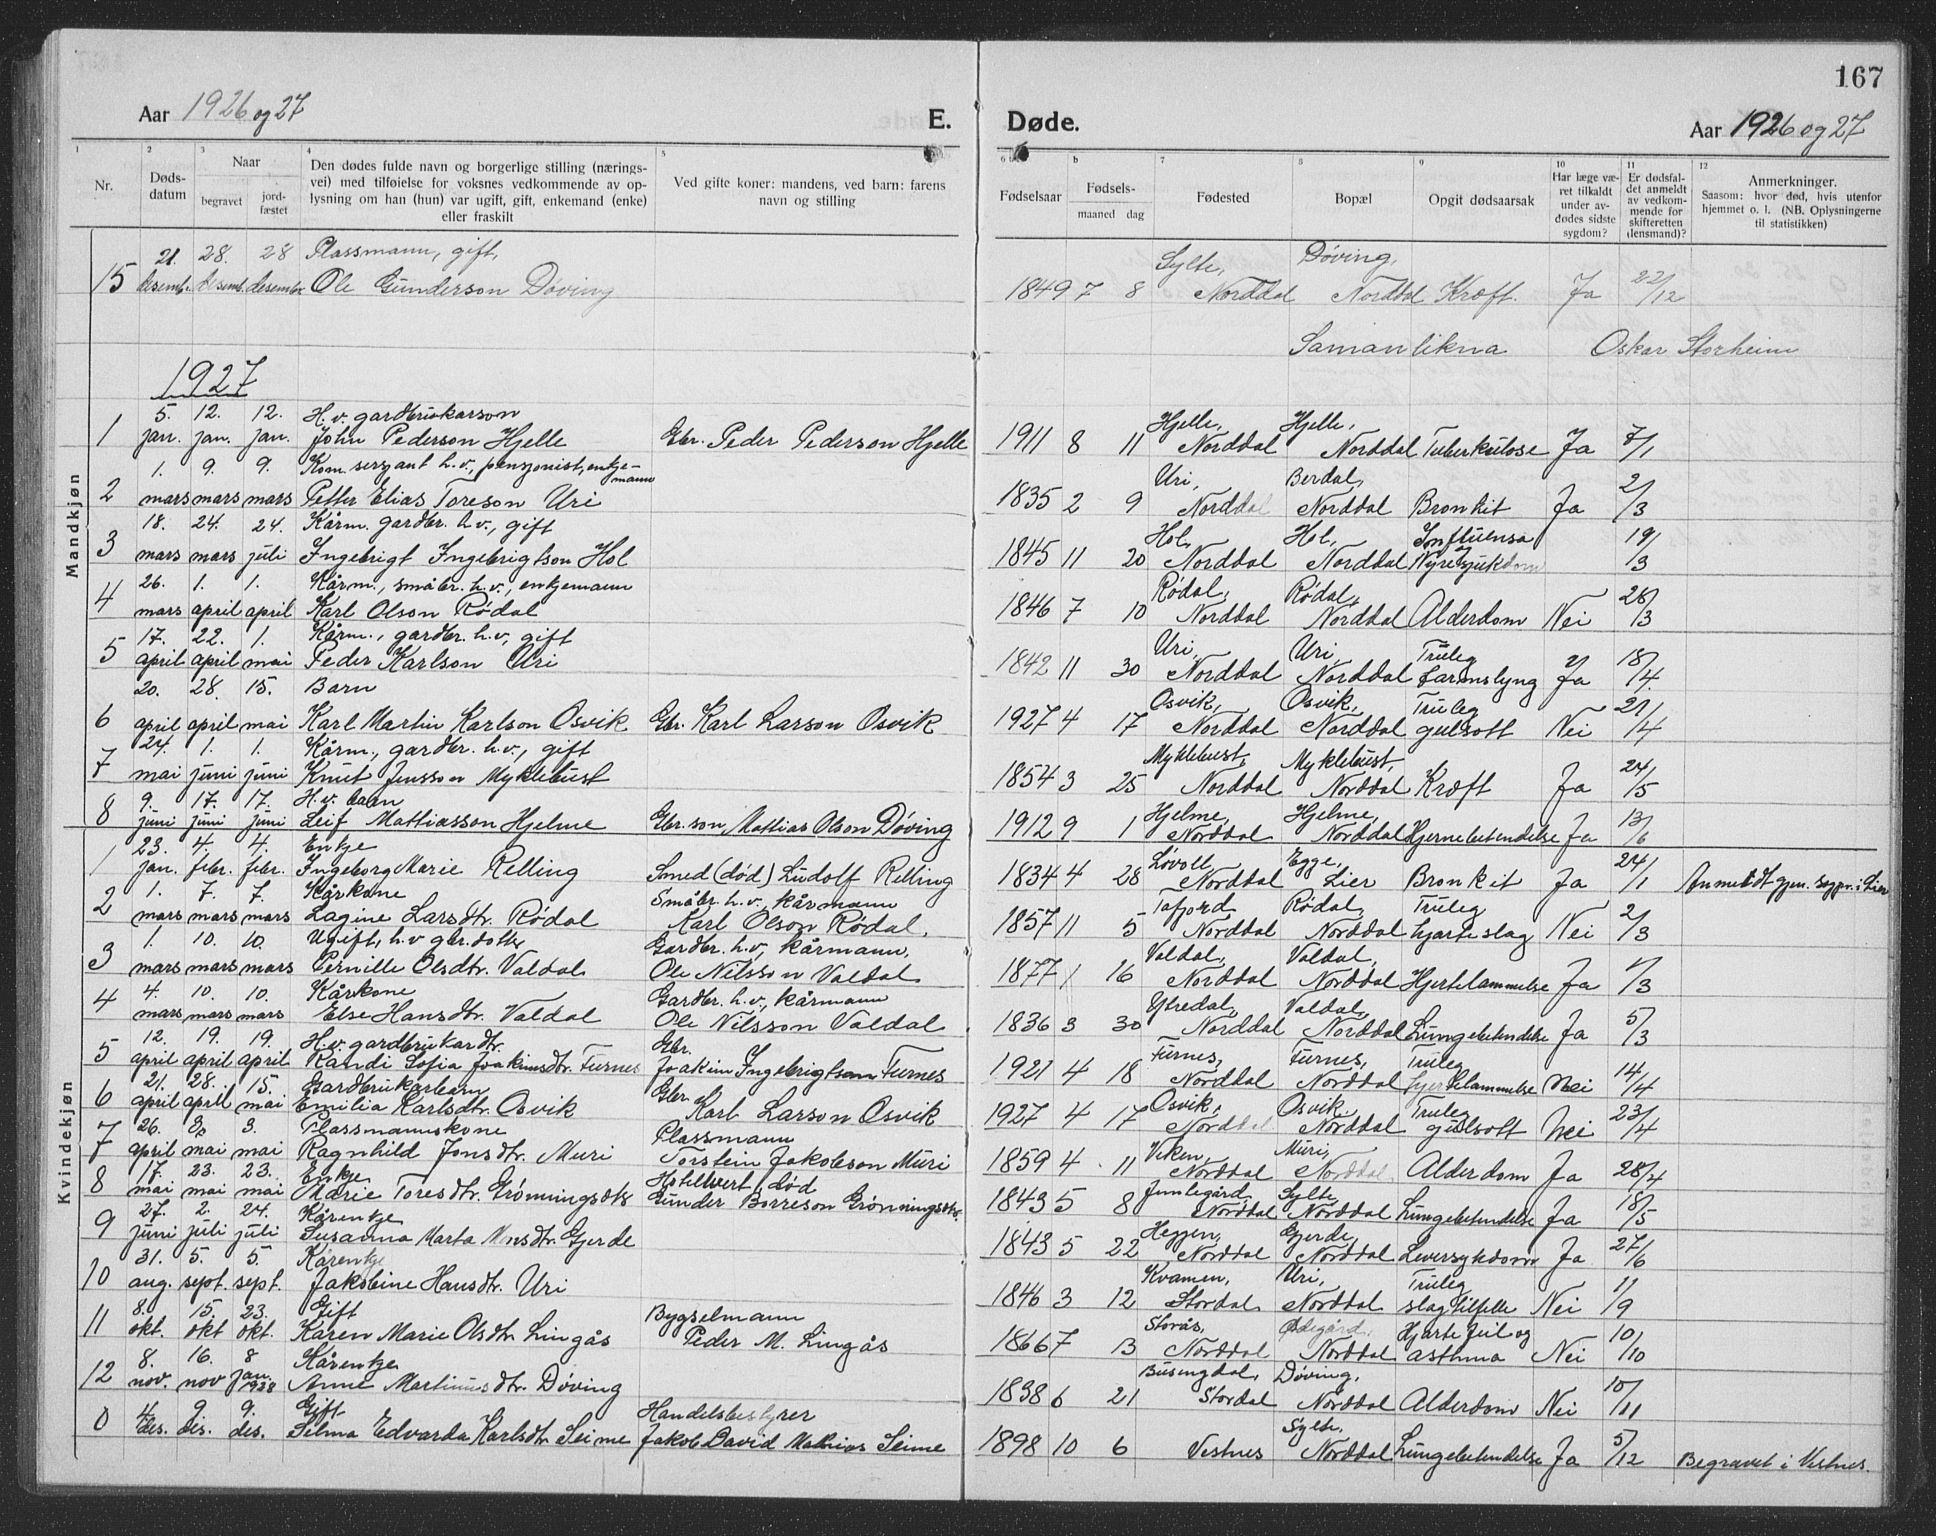 167
Aar 1926 og 27
E.
Døde.
Aar 1926 og 27
1 2 3 4 5 6 b 7 8 9 10 11 12
Nr.
Dødsdatum
Naar
begravet
jordfæstet
Den dødes fulde navn og borgerlige stilling (næringsvei) med tilføielse for voksnes vedkommende av oplysning om han (hun) var ugift, gift, enkemand (enke) eller fraskilt
Ved gifte koner: mandens, ved barn: farens navn og stilling
Fødselsaar
Fødselsmaaned dag
Fødested
Bopæl
Opgit dødsaarsak
Har læge været tilkaldt under avdødes sidste sygdom?
Er dødsfaldet anmeldt av vedkommende for skifteretten (lensmand)?
Anmerkninger.
Saasom: hvor død, hvis utenfor hjemmet o. l. (NB. Oplysningerne til statistikken)
21. 28. 28 Plassmann, gift, Sylte, Døving, 22/12
15 desemb. desemb. desember Ole Gunderson Døving 1849 7 8 Norddal Norddal Kræft. Ja
Samanlikna Oskar Storheim
1927
Mandkjøn
5. 12. 12. H.v. gardbrukarson Hjelle, Hjelle,
1 jan. jan. jan. John Pederson Hjelle Gbr. Peder Pederson Hjelle 1911 8 11 Norddal Norddal Tuberkulose Ja 7/1
1. 9. 9. Kom. sersjant h.v., pensjonist, enkjemann Uri, Berdal,
2 mars mars mars Petter Elias Toreson Uri 1835 2 9 Norddal Norddal Bronkit Ja 2/3
18. 24. 24. Kårm. gardbr. h.v., gift Hol, Hol, Influensa og
3 mars mars juli Ingebrigt Ingebrigtson Hol 1845 11 20 Norddal Norddal Nyresjukdom 19/3
26. 1. 1. Kårm., småbr. h.v., enkjemann Rødal, Rødal,
4 mars april april Karl Olson Rødal 1846 7 10 Norddal Norddal Alderdom Nei 28/3
17. 22. 1. Kårm., gardbr. h.v., gift Uri, Uri, Truleg
5 april april mai Peder Karlson Uri 1842 11 30 Norddal Norddal tarmslyng Ja 18/4
20. 28. 15. Barn Osvik, Osvik, Truleg
6 april april mai Karl Martin Karlson Osvik Gbr. Karl Larson Osvik 1927 4 17 Norddal Norddal gulsott Nei 21/4
24. 1. 1. Kårm., gardbr. h.v., gift Myklebust, Myklebust,
7 mai juni juni Knut Jensson Myklebust 1854 3 25 Norddal Norddal Kræft Ja 24/5
9. 17. 17. H.v. barn Hjelme, Hjelme,
8 juni juni juni Leif Mattiasson Hjelme Gbr. son, Mattias Olson Døving 1912 9 1 Norddal Norddal Hjernebetendelse Ja 13/6
Kvindekjøn
23. 4. 4. Enkje Løvoll, Egge,
1 jan. febr. febr. Ingeborg Marie Relling Smed (død) Ludolf Relling 1834 4 28 Norddal Lier Bronkit Ja 24/1 Anmeldt gjen. sogpr. i Lier
1. 7. 7. Kårkone Småbr. h.v., kårmann Tafjord Rødal, Truleg
2 mars mars mars Lagine Larsdtr. Rødal Karl Olson Rødal. 1857 11 5 Norddal Norddal hjarteslag Nei 2/3
1. 10. 10. Ugift, h.v gbr. dotter Gardbr. h.v., kårmann, Valdal, Valdal,
3 mars mars mars Pernille Olsdtr. Valdal Ole Nilsson Valdal 1877 1 16 Norddal Norddal Hjertelammelse Ja 1/3
4. 10. 10. Kårkone Gardbr. h.v., kårmann Ytredal, Valdal,
4 mars mars mars Else Hansdtr. Valdal Ole Nilsson Valdal 1836 3 30 Norddal Norddal Lungebetendelse Ja 5/3
12. 19. 19. H.v. gardbrukardtr. Gbr. Furnes, Furnes, Truleg
5 april april april Randi Sofia Joakimsdtr. Furnes Joakim Ingebrigtson Furnes 1921 4 18 Norddal Norddal hjertelammelse Nei 14/4
21. 28. 15. Gardbrukarbarn Gbr. Osvik, Osvik. Truleg
6 april april mai Emilia Karlsdtr. Osvik Karl Larson Osvik 1927 4 17 Norddal Norddal gulsott Nei 23/4
26. 3. 3. Plassmannskone Plassmann Viken, Muri,
7 april mai mai Ragnhild Jonsdtr. Muri Torstein Jakobson Muri 1859 4 11 Norddal Norddal Alderdom Ja 28/4
17. 23. 23. Enkje Hotellvert, død Sylte,
8 mai mai mai Marie Toresdtr. Grønningsæter Gunder Borreson Grønningsæter. 1843 5 8 Norddal Norddal Lungebetendelse Ja 18/5
27. 2. 24. Kårenkje Heggen, Gjerde,
9 juni juli juli Susanna Marta Gjerde 1843 5 22 Norddal Norddal Leversykdom Ja 27/6
31. 5. 5. Kårenkje Kvamen, Uri, Truleg
10 aug. sept. sept. Jakobine Hansdtr. Uri 1846 3 12 Stordal Norddal slagtilfelle Nei 1/9
8. 15. 23. Gift Bygselmann Storås, Ødegård, Hjartefeil og
11 okt. okt okt. Karen Marie Olsdtr. Lingås Peder M. Lingås 1866 7 13 Norddal Norddal asthma Nei 10/10
8. 16. 8 Kårenkje Busengdal, Døving,
12 nov. nov jan. 1928 Anne Martinusdtr. Døving 1838 6 21 Stordal Norddal Alderdom Nei 10/11
4. 9. 9. Gift Handelsbestyrer Sylte,
0 des. dis. des. Selma Edvarda Karlsdtr. Seime Jakob David Mathias Seime 1898 10 6 Vestnes Norddal Lungebetendelse Ja 5/12 Begravet i Vestnes.